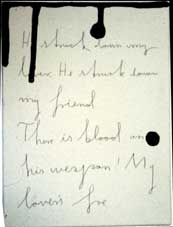 He struck down my
lover. He struck down
my friend
There is blood on
his weapon! My
lover's foe